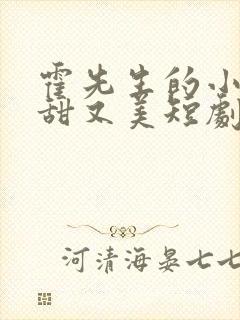 霍先生的小
甜又美短劇
河清海晏七七